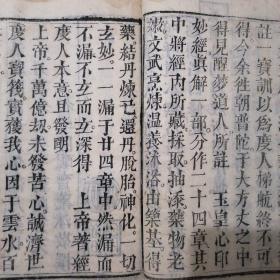 註一寶訓以爲度人梯航終不可
得於今余往朝普陀于大功德寺中
得見醒夢道人所註　玉皇心印
妙經真解一部分作二十四章其
中將經内所藏採取抽添藥物老
嫩文武烹煉温養沐浴由築基得
藥結丹煉己還丹脫胎神化一切
玄妙一一漏于廿四章中然漏而
不漏不立而立深得　上帝著經
度人本意且發明
上帝千萬億刧未發苦心誠濟世
度人寶筏實獲我心因于雲水百